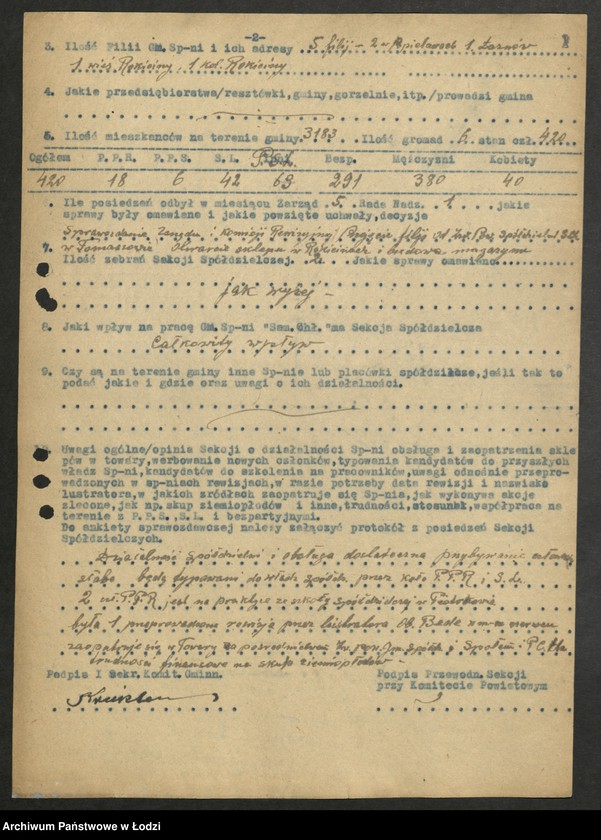 -2-
3. Ilość Filii Gm.Sp-ni i ich adresy 5 filij - 2 w 1 Łaznów
1 wieś Rokiciny, 1 kol. Rokiciny
4. Jakie przedsiębiorstwa/resztówki,gminy,gorzelnie,itp./prowadzi gmina
5. Ilość mieszkańców na terenie gminy.3183..Ilość gromad .6. stan czł.420..
Ogółem P.P.R. P.P.S. S.L. P.S.L. Bezp. Mężczyzni Kobiety
420 18 6 42 63 291 380 40
. Ile posiedzeń odbył w miesiącu Zarząd .5. Rada Nadz. 1 .... jakie
sprawy były omawiane i jakie powzięte uchwały,decyzje
Sprawozdanie Zarządu i Komisji Rewizyjnej filij
w Tomaszowie Otwarcie sklepu w Rokicinach i budowa magazynu
7. Ilość zebrań Sekcji Spółdzielczej. .. Jakie sprawy omawiano.
jak wyżej -
8. Jaki wpływ na pracę Gm.Sp-ni "Sam.Chł."ma Sekcja Spółdzielcza
Całkowity wpływ
9. Czy są na terenie gminy inne Sp-nie lub placówki spółdzielcze,jeśli tak to
podać jakie i gdzie oraz uwagi o ich działalności.
10. Uwagi ogólne/opinia Sekcji o działalności Sp-ni obsługa i zaopatrzenia skle
pów w towary,werbowanie nowych członków,typowania kandydatów do przyszłych
władz Sp-ni,kandydatów do szkolenia na pracowników,uwagi odnośnie przepro-
wadzonych w sp-niach rewizjach,w razie potrzeby data rewizji i nazwisko
lustratora,w jakich zródłach zaopatruje się Sp-nia,jak wykonywa akcje
zlecone,jak np.skup ziemiopłodów i inne,trudności,stosunek,współpraca na
terenie z P.P.S.,S.L. i bezpartyjnymi.
Do ankiety sprawozdawczej należy załączyć protokół z posiedzeń Sekcji
Spółdzielczych.
Działalność Spółdzielni i obsługa dostateczna przybywanie członków
słabe będą typowani do władz spółdz. przez koło P.P.R i S.L.
2 czł. P.P.R jest na praktyce ze szkoły spółdzielczej w Piotrkowie
była 1 przeprowadzona rewizja przez lustratora Ob.
zaopatruje się w Towary za pośrednictwem Gm. Spółdz. i Społem i P.C.H.
trudności finansowe na skup ziemiopłodów -
Podpis I Sekr.Komit.Gminn. Podpis Przewodn.Sekcji
przy Komitecie Powiatowym
Archiwum Państwowe w Łodzi